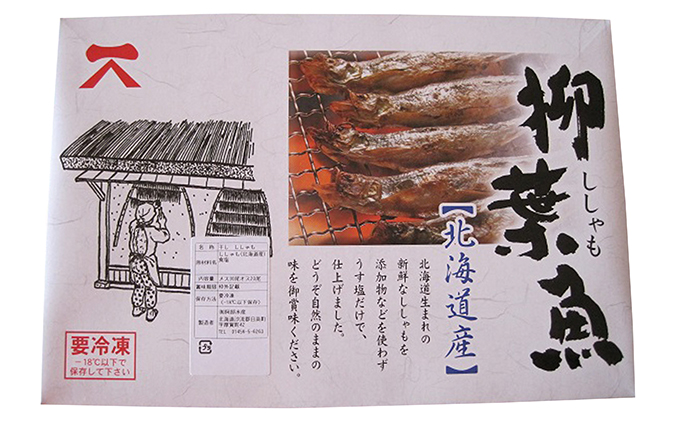 柳葉魚
ししゃも
【北海道産】
北海道生まれの
新鮮なししゃもを
添加物などを使わず
うす塩だけで、
仕上げました。
どうぞ自然のままの
味を御賞味ください。
名称 干し ししゃも
原材料名 ししゃも(北海道産)
食塩
内容量
賞味期限 枠外記載
保存方法 要冷凍
(-18℃以下保存)
製造者
北海道沙流郡日高町
TEL 01456-5-6263
プラ
要冷凍
−18℃以下で
保存して下さい